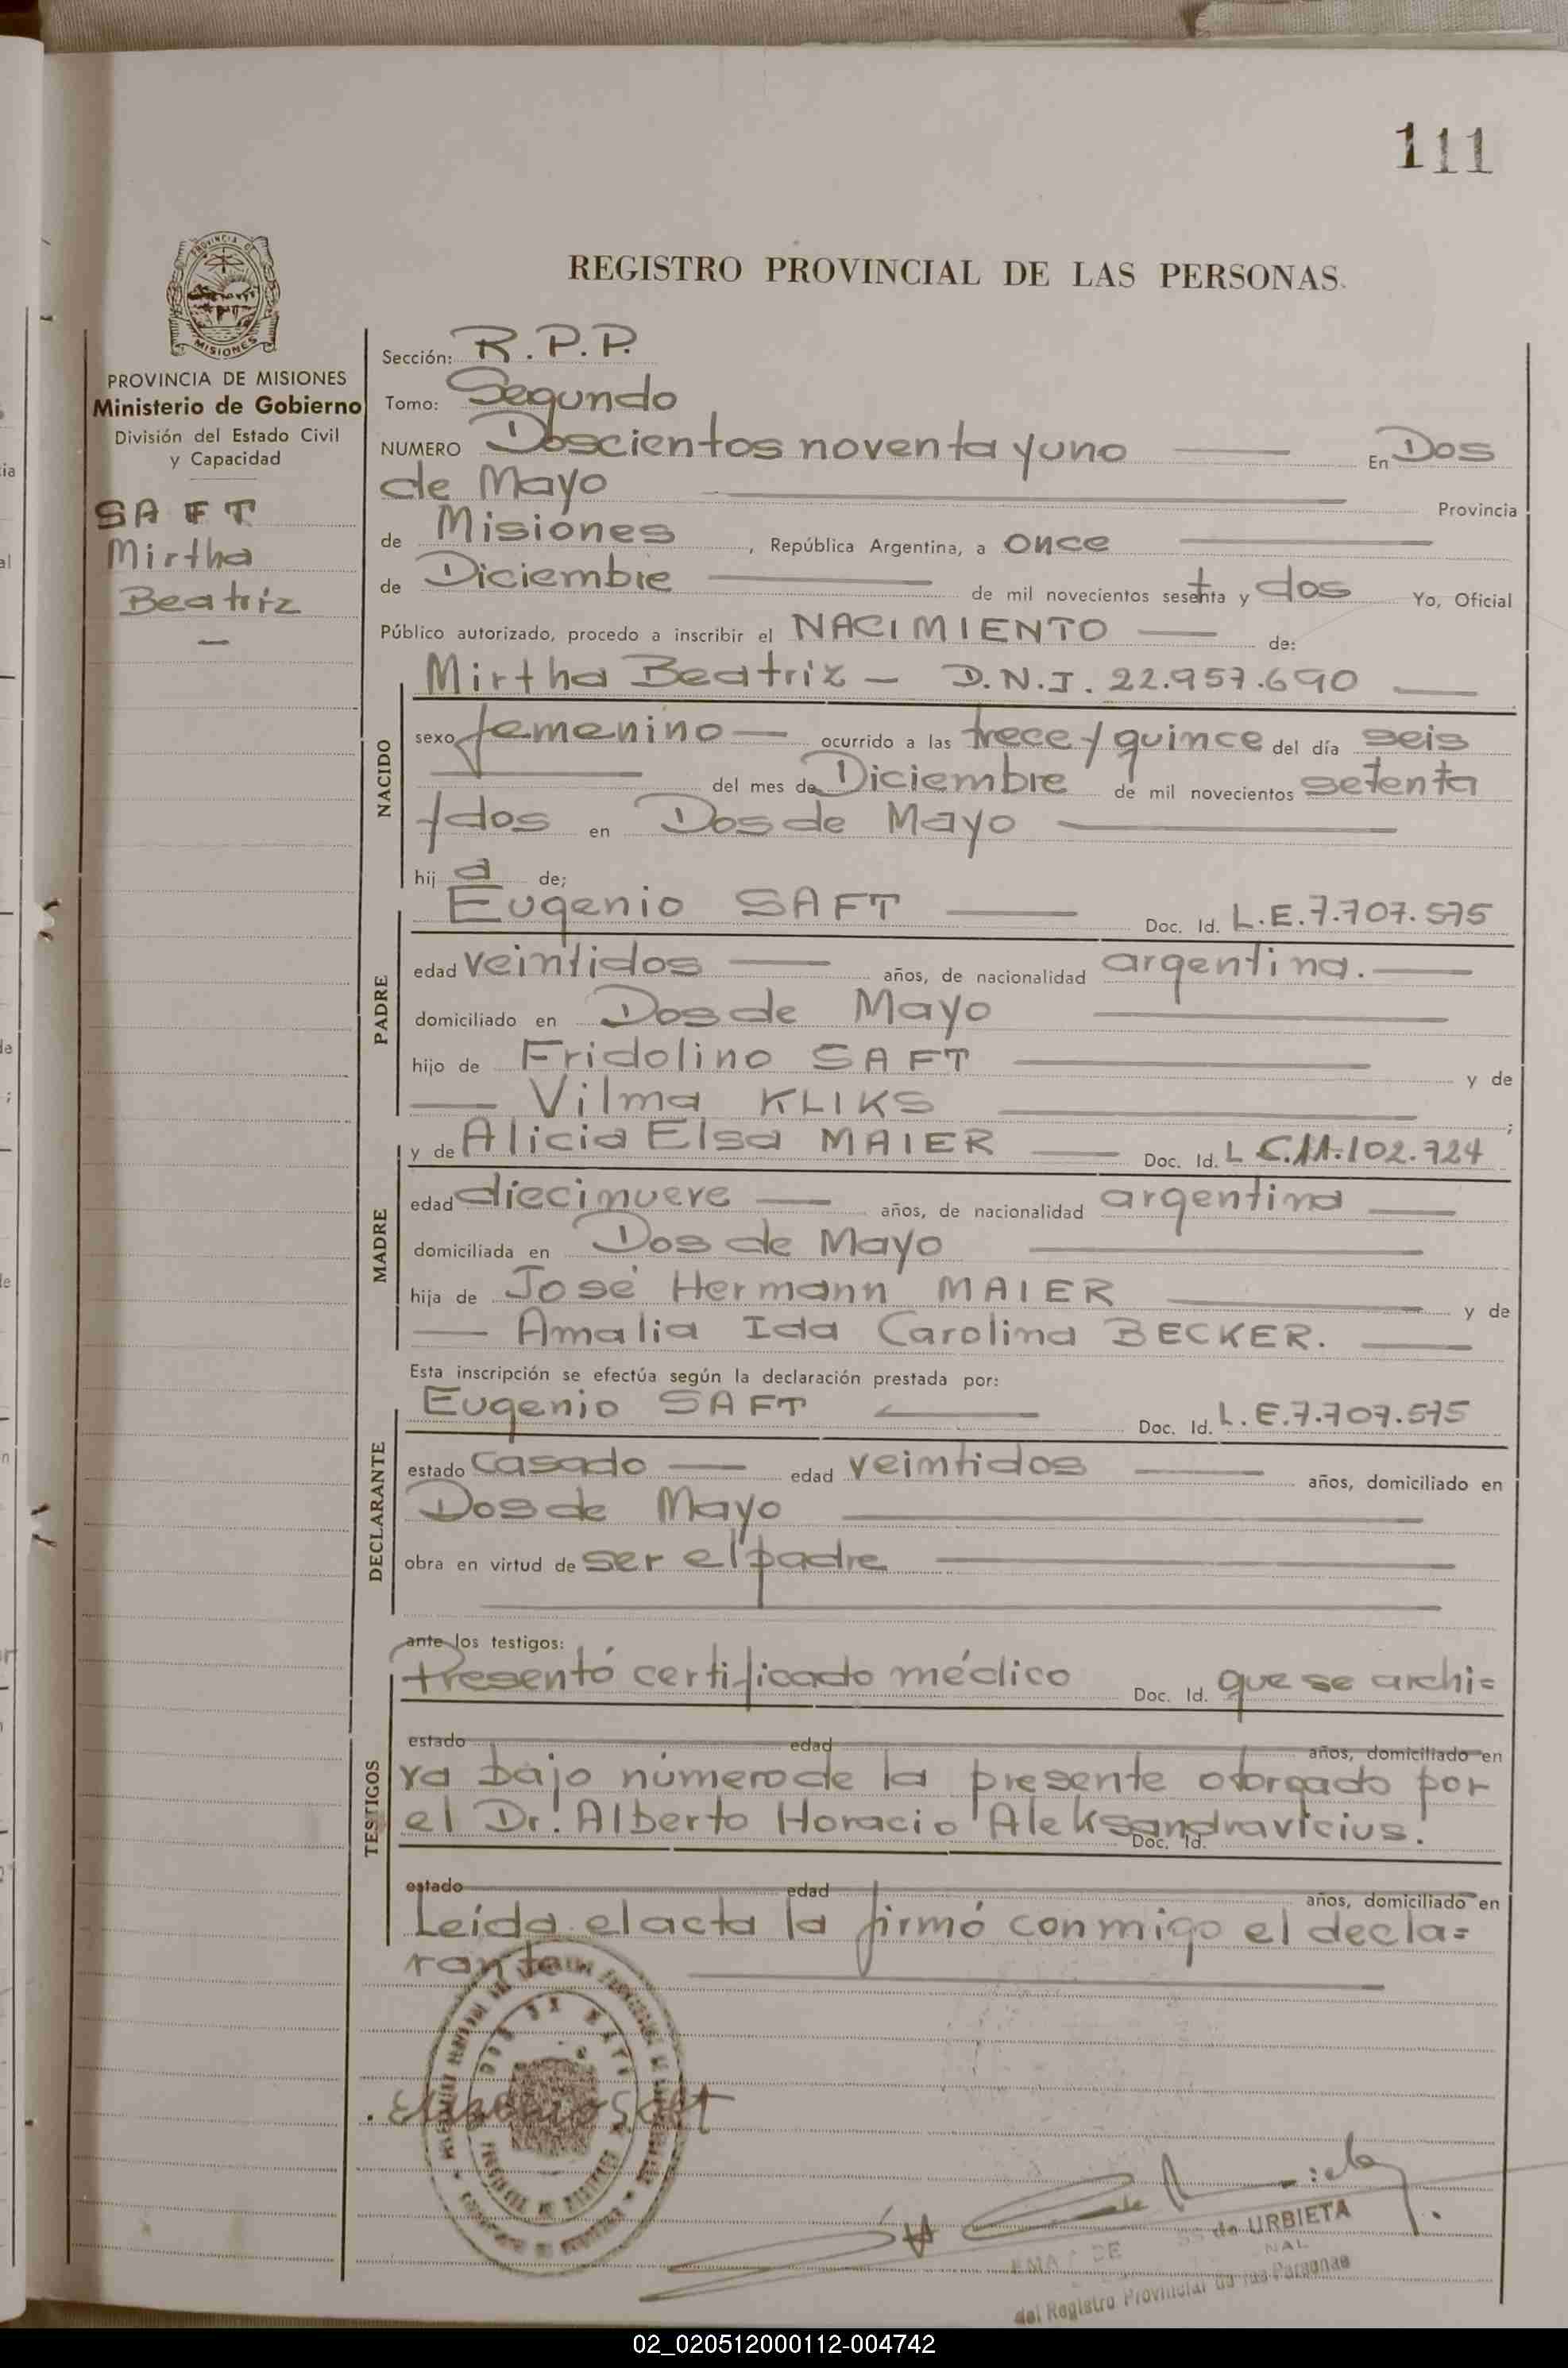 111
REGISTRO PROVINCIAL DE LAS PERSONAS.
PROVINCIA DE MISIONES
Ministerio de Gobierno
División del Estado Civil
y Capacidad
SAFT
Mirtha
Beatriz
Sección: R.P.P.
Tomo: Segundo
NUMERO Doscientos noventa y uno En Dos
de Mayo Provincia
de Misiones, República Argentina, a once
de Diciembre de mil novecientos setenta y dos Yo, Oficial
Público autorizado, procedo a inscribir el NACIMIENTO de:
Mirtha Beatriz - D.N.I. 22.957.690
NACIDO
sexo femenino ocurrido a las trece y quince del día seis
del mes de Diciembre de mil novecientos setenta
y dos en Dos de Mayo
hij a de;
PADRE
Eugenio SAFT Doc. Id. L.E.7.707.575
edad veintidos años, de nacionalidad argentina.
domiciliado en Dos de Mayo
hijo de Fridolino SAFT y de
Vilma KLIKS ;
MADRE
y de Alicia Elsa MAIER Doc. Id. L.C.11.102.724
edad diecinueve años, de nacionalidad argentina
domiciliada en Dos de Mayo
hija de José Hermann MAIER y de
Amalia Ida Carolina BECKER.
Esta inscripción se efectúa según la declaración prestada por:
DECLARANTE
Eugenio SAFT Doc. Id. L.E.7.707.575
estado casado edad veintidos años, domiciliado en
Dos de Mayo
obra en virtud de ser el padre
ante los testigos:
TESTIGOS
Presentó certificado médico Doc. Id. que se archi=
estado edad años, domiciliado en
va bajo número de la presente otorgado por
el Dr. Alberto Horacio Aleksandravicius.
Doc. Id.
estado edad años, domiciliado en
Leida el acta la firmó conmigo el decla=
rante
Eugenio Saft
de URBIETA
del Registro Provincial de las Personas
02_020512000112-004742